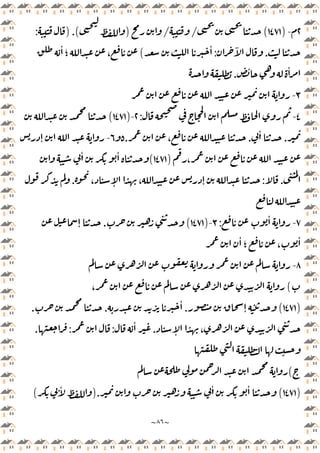 ٢م- (١٤٧١) حدثنا يحيى بن يحيى/ وقتيبة/ وابن رمح (واللفظ ليحيى). (قال قتيبة:
حدثنا ليث. وقال الآخران: أخبرنا الليث بن سعد) عن نافع، عن عبدالله؛ أنه طلق
امرأة له وهي حائض. تطليقة واحدة
٣- رواية ابن نمير عن عبيد الله عن نافع عن ابن عمر
٤- ثم روي الحافظ مسلم ابن الحجاج في صحيحه قال: ٢-(١٤٧١) حدثنا محمد بن عبدالله بن
نمير. حدثنا أبي. حدثنا عبيدالله عن نافع، عن ابن عمر. ٥و٦- رواية عبد الله ابن إدريس
عن عبيد الله عن نافع عن ابن عمر. رقم (١٤٧١) وحدثناه أبو بكر بن أبي شيبة وابن
المثنى. قالا: حدثنا عبدالله بن إدريس عن عبيدالله، بهذا الإسناد، نحوه. ولم يذكر قول
عبيدالله لنافع
٧- رواية أيوب عن نافع: ٣-(١٤٧١) وحدثني زهير بن حرب. حدثنا إسماعيل عن
أيوب، عن نافع؛ أن ابن عمر
٨- رواية سالم عن ابن عمر ورواية يعقوب عن الزهري عن سالم
ب) رواية الزبيدي عن الزهري عن سالم عن نافع عن ابن عمر،
(١٤٧١) وحدثنيه إسحاق بن منصور. أخبرنا يزيد بن عبدربه. حدثنا محمد بن حرب.
حدثني الزبيدي عن الزهري، بهذا الإسناد. غير أنه قال: قال ابن عمر: فراجعتها.
وحسبت لها التطليقة التي طلقتها
ج) رواية محمد ابن عبد الرحمن مولي طلحة عن سالم
(١٤٧١) وحدثنا أبو بكر بن أبي شيبة وزهير بن حرب وابن نمير. (واللفظ لأبي بكر)
~٨٦~